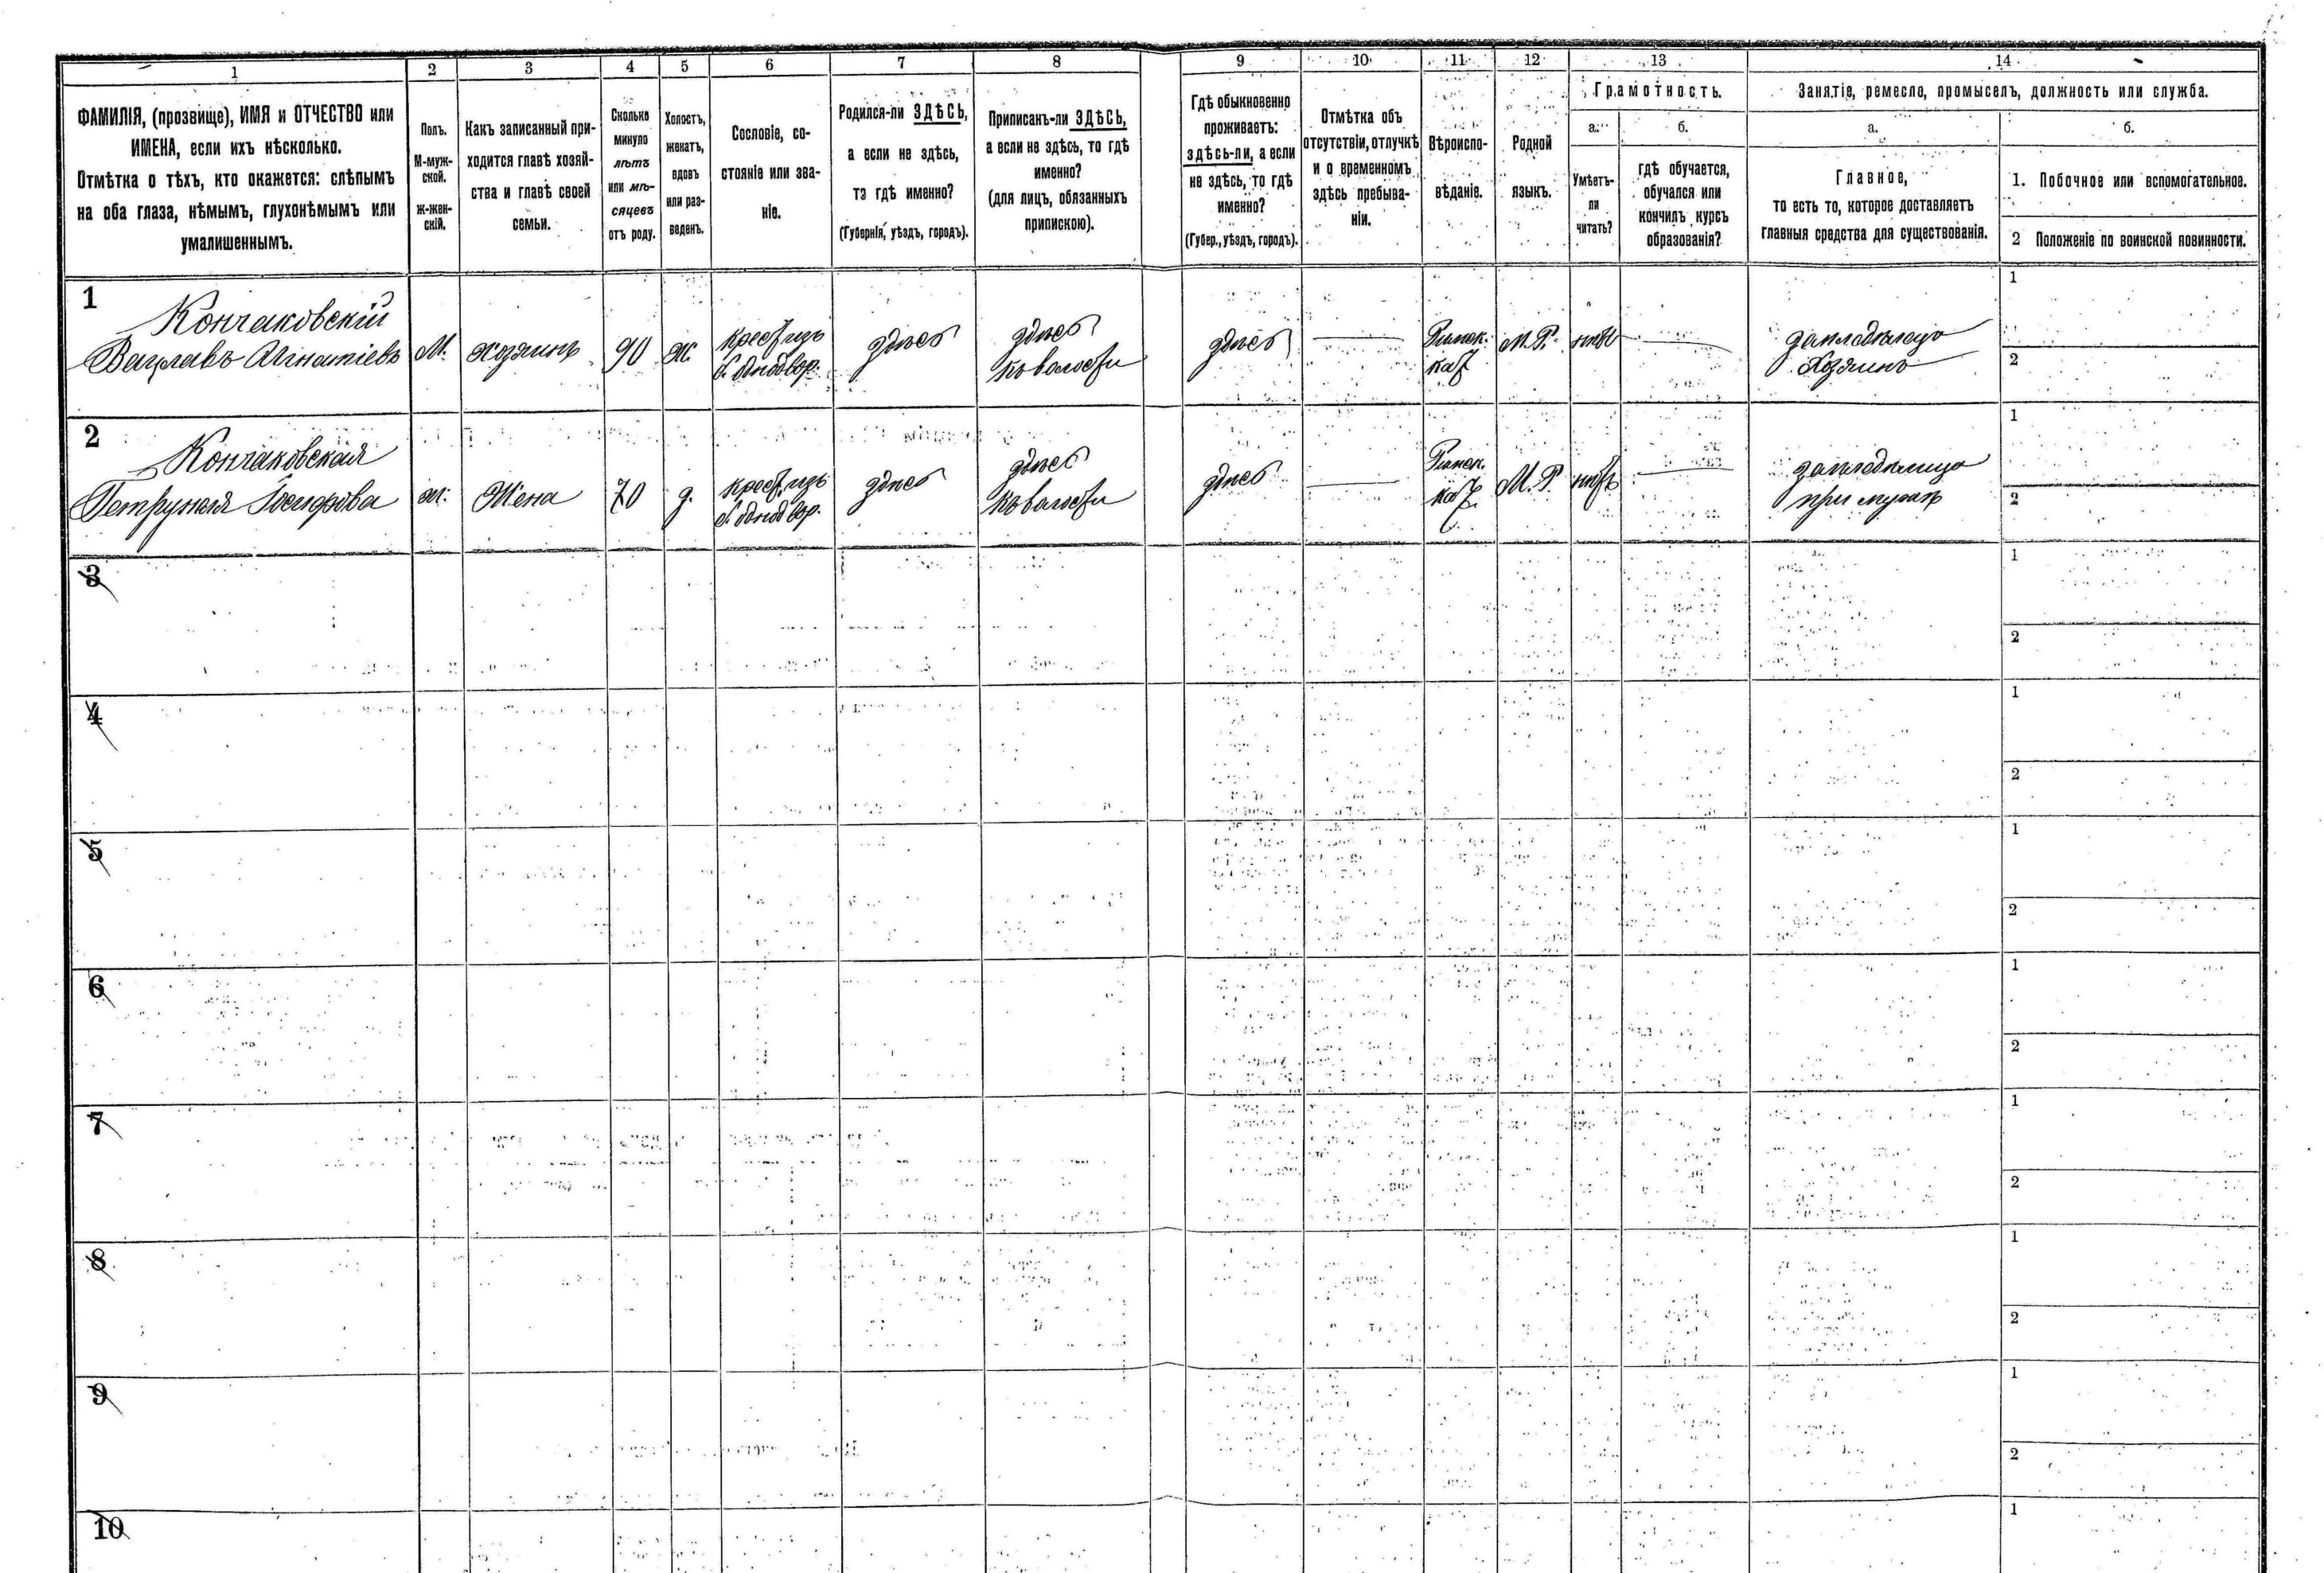 1 2 3 4 5 6 7 8 9 10 11 12 13 14
ФАМИЛІЯ, (прозвище), ИМЯ и ОТЧЕСТВО или
ИМЕНА, если ихъ нѣсколько.
Отмѣтка о тѣхъ, кто окажется: слѣпымъ
на оба глаза, нѣмымъ, глухонѣмымъ или
умалишеннымъ.
Полъ.
М-муж-
ской.
Ж-жен-
скій.
Какъ записанный при-
ходится главѣ хозяй-
ства и главѣ своей
семьи.
Сколько
минуло
лѣтъ
или мѣ-
сяцевъ
отъ роду.
Холостъ,
женатъ,
вдовъ
или раз-
веденъ.
Сословіе, со-
стояніе или зва-
ніе.
Родился-ли ЗДѢСЬ,
а если не здѣсь,
то гдѣ именно?
(Губернія, уѣздъ, городъ).
Приписанъ-ли ЗДѢСЬ,
а если не здѣсь, то гдѣ
именно?
(для лицъ, обязанныхъ
припискою).
Гдѣ обыкновенно
проживаетъ:
здѣсь-ли, а если
не здѣсь, то гдѣ
именно?
(Губер., уѣздъ, городъ).
Отмѣтка объ
отсутствіи, отлучкѣ
и о временномъ
здѣсь пребыва-
ніи.
Вѣроиспо-
вѣданіе.
Родной
языкъ.
Грамотность.
а.
Умѣетъ-
ли
читать?
б.
гдѣ обучается,
обучался или
кончилъ курсъ
образованія?
Занятіе, ремесло, промыселъ, должность или служба.
а.
Главное,
то есть то, которое доставляетъ
главныя средства для существованія.
б.
1. Побочное или вспомогательное.
2 Положеніе по воинской повинности.
1
Кончаковскій
Вацлавъ Игнатіевъ
М.
хозяинъ
90
ж.
крест. изъ
б. однодвор.
здѣсь
здѣсь
къ волости
здѣсь
Римск.
кат.
М. Р.
нѣтъ
земледѣлецъ
Хозяинъ
1
2
2
Кончаковская
Петрунеля Іосифова
ж.
Жена
70
з.
крест. изъ
б. однодвор.
здѣсь
здѣсь
къ волости
здѣсь
Римск.
кат.
М. Р.
нѣтъ
земледѣлица
при мужѣ
1
2
3
1
2
4
1
2
5
1
2
6
1
2
7
1
2
8
1
2
9
1
2
10
1